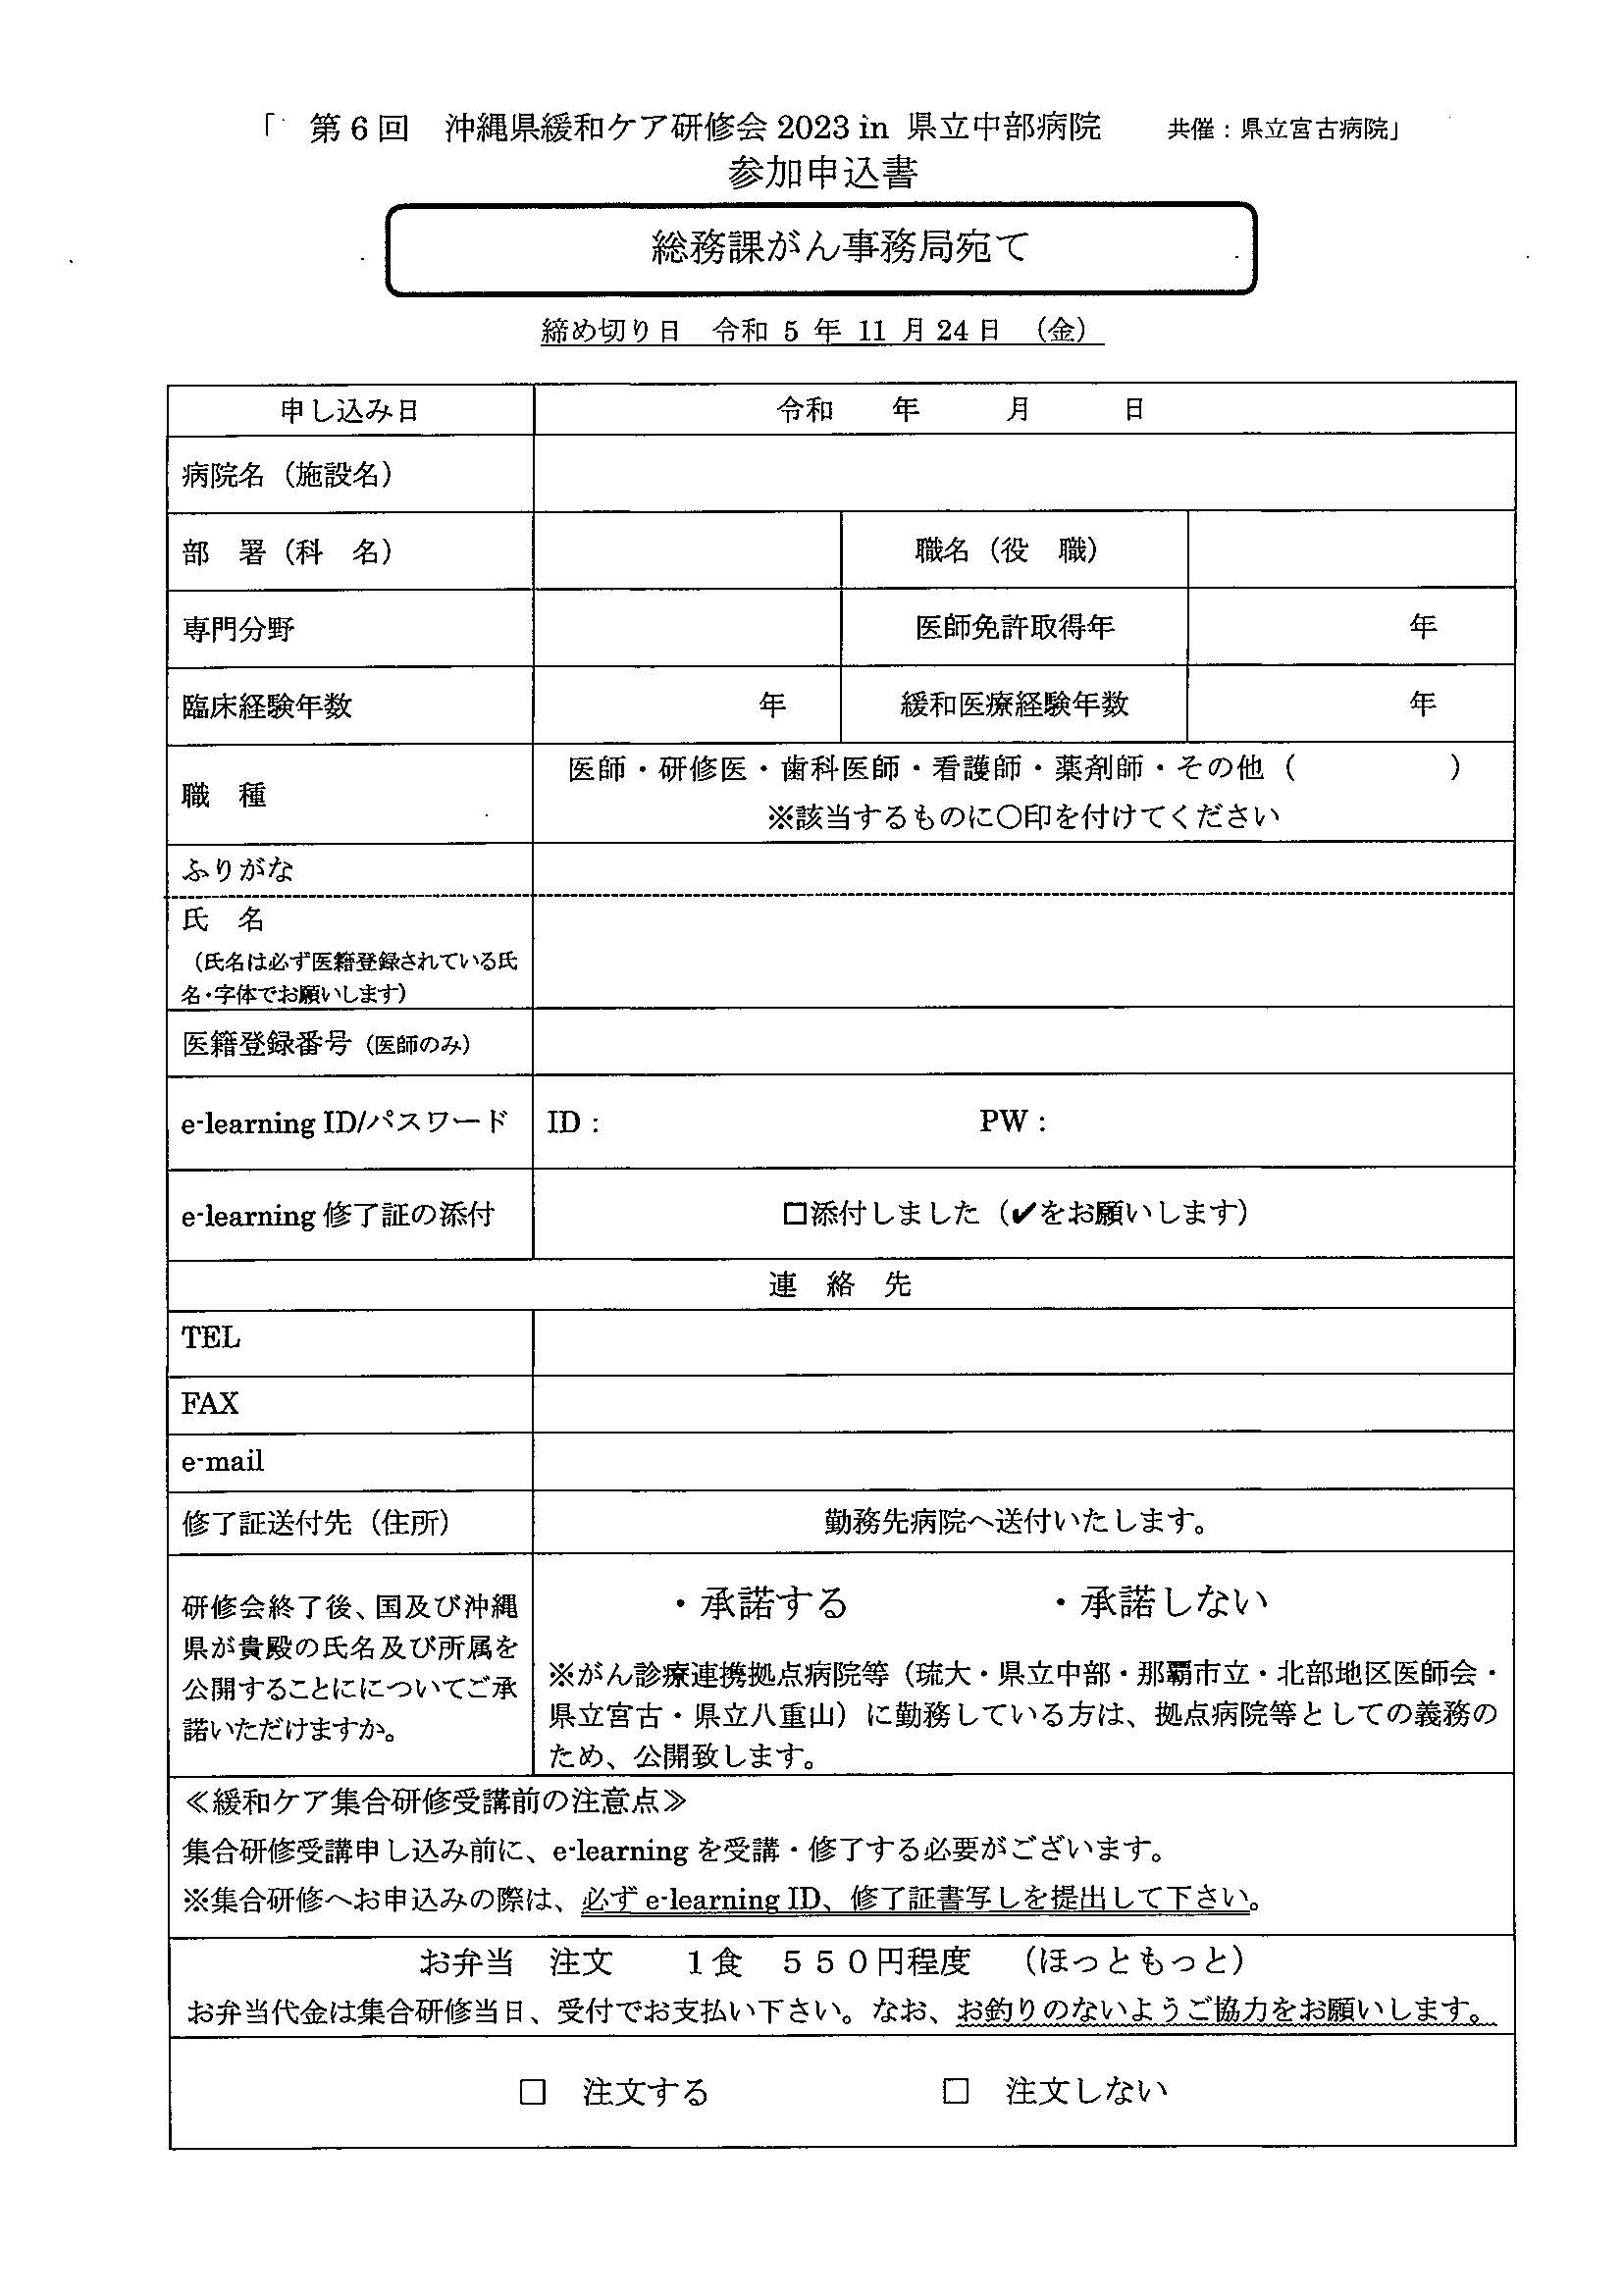 「 第6回 沖縄県緩和ケア研修会 2023 in 県立中部病院 共催：県立宮古病院」
参加申込書
総務課がん事務局宛て
締め切り日 令和 5 年 11 月 24 日 （金）
申し込み日 令和 年 月 日
病院名（施設名）
部 署（科 名） 職名（役 職）
専門分野 医師免許取得年 年
臨床経験年数 年 緩和医療経験年数 年
職 種 医師・研修医・歯科医師・看護師・薬剤師・その他（ ）
※該当するものに○印を付けてください
ふりがな
氏 名
（氏名は必ず医籍登録されている氏
名・字体でお願いします）
医籍登録番号（医師のみ）
e-learning ID/パスワード ID： PW：
e-learning 修了証の添付 □添付しました（✔をお願いします）
連 絡 先
TEL
FAX
e-mail
修了証送付先（住所） 勤務先病院へ送付いたします。
研修会終了後、国及び沖縄
県が貴殿の氏名及び所属を
公開することにについてご承
諾いただけますか。
・承諾する ・承諾しない
※がん診療連携拠点病院等（琉大・県立中部・那覇市立・北部地区医師会・
県立宮古・県立八重山）に勤務している方は、拠点病院等としての義務の
ため、公開致します。
≪緩和ケア集合研修受講前の注意点≫
集合研修受講申し込み前に、e-learning を受講・修了する必要がございます。
※集合研修へお申込みの際は、必ず e-learning ID、修了証書写しを提出して下さい。
お弁当 注文 １食 ５５０円程度 （ほっともっと）
お弁当代金は集合研修当日、受付でお支払い下さい。なお、お釣りのないようご協力をお願いします。
□ 注文する □ 注文しない